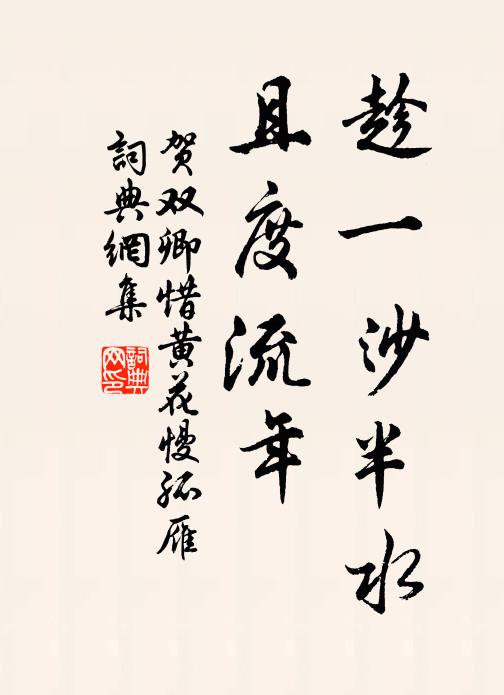 趁一沙半水
且度流年
贺双卿惜黄花慢孤雁
詞典網集
詞典網印